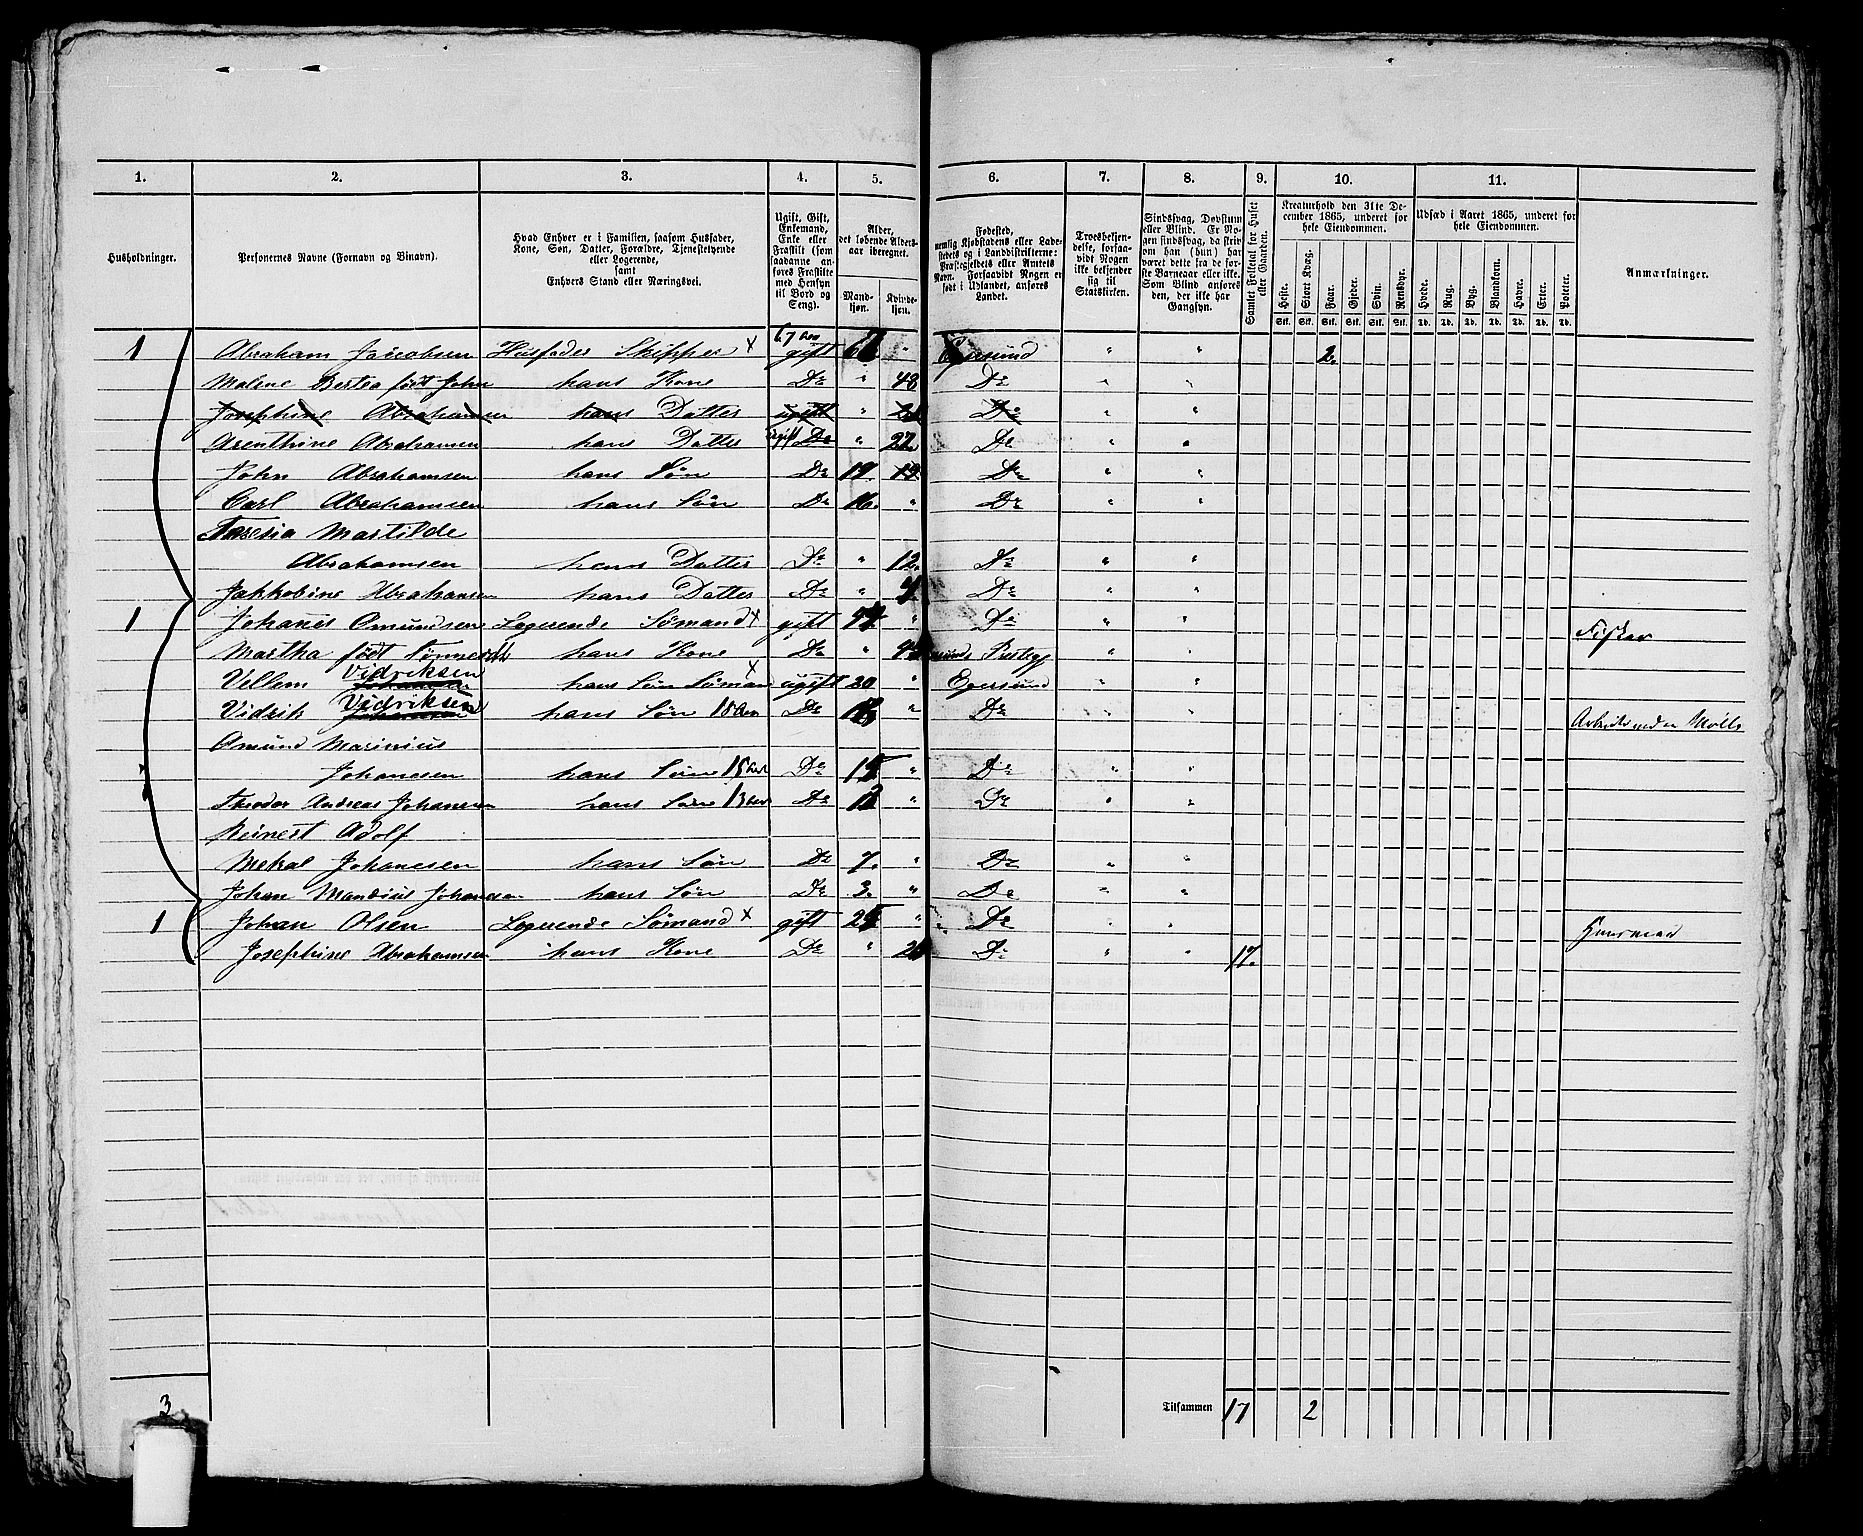 1. 2. 3. 4. 5. 6. 7. 8. 9. 10. 11.
Husholdninger.
Personernes Navne (Fornavn og Binavn).
Hvad Enhver er i Familien, saasom Husfader,
Kone, Søn, Datter, Forældre, Tjenestetyende
eller Logerende,
samt
Enhvers Stand eller Næringsvei.
Ugift, Gift,
Enkemand,
Enke eller
Fraskilt (som
saadanne an-
føres Fraskilte
med Hensyn
til Bord og
Seng).
Alder,
det løbende Alders-
aar iberegnet.
Mand-
kjøn.
Kvinde-
kjøn.
Fødested,
nemlig Kjøbstadens eller Lade-
stedets og i Landdistrikterne:
Præstegjeldets eller Amtets
Navn. Forsaavidt Nogen er
født i Udlandet, anføres
Landet.
Troesbekjen-
delse, forsaa-
vidt Nogen
ikke bekjender
sig til
Statskirken.
Sindssvag, Døvstum
eller Blind. Er No-
gen sindssvag, da skriv
om han (hun) har
været dette fra de før-
ste Barneaar eller ikke.
Som Blind ansøres
den, der ikke har
Gangsyn.
Samlet Folketal for Huset
eller Gaarden.
Kreaturhold den 31te De-
cember 1865, underet for
hele Eiendommen.
Heste. Stort Kvæg. Faar. Gjeder. Svin. Rensdyr.
Stk. Stk. Stk. Stk. Stk. Stk.
Udsæd i Aaret 1865, underet for
hele Eiendommen.
Hvede. Rug. Byg. Blandkorn. Havre. Erter. Poteter.
Td. Td. Td. Td. Td. Td. Td.
Anmærkninger.
1 Abraham Jacobsen Husfader Skipper x gift 67 Aar " Egersund " " 2.
Malene Bertea født John hans Kone Do " 48 Do " "
Josephine Abrahamsen hans Datter ugift " Do " "
Arenthine Abrahamsen hans Datter ugift Do " 22. Do " "
John Abrahamsen hans Søn Do 19. 19. Do " "
Carl Abrahamsen hans Søn Do 16. " Do " "
Martilde
Abrahamsen hans Datter Do " 12. Do " "
Jakkobine Abrahamsen hans Datter Do " Do " "
1 Johanes Omundsen Logerende Sømand x gift " Do " "
Fisker
Martha født hans Kone Do " "
Villem Vidriksen hans Søn Sømand x ugift 20 " Egersund " "
Vidrik Vidriksen hans Søn 18 Aar Do " Do " "
Omund Marinius
Johanesen hans Søn 15 Aar Do 15 " Do " "
Theodor Andreas Johanesen hans Søn 13 Aar Do " Do " "
Reinert Adolf
Mekal Johanesen hans Søn Do 7. " Do " "
Johan Mandius Johanesen hans Søn Do 3. " Do " "
1 Johan Olsen Logerende Sømand x gift " Do " "
Josephine Abrahamsen hans Kone Do " Do " " 17.
Tilsammen 17 2
3